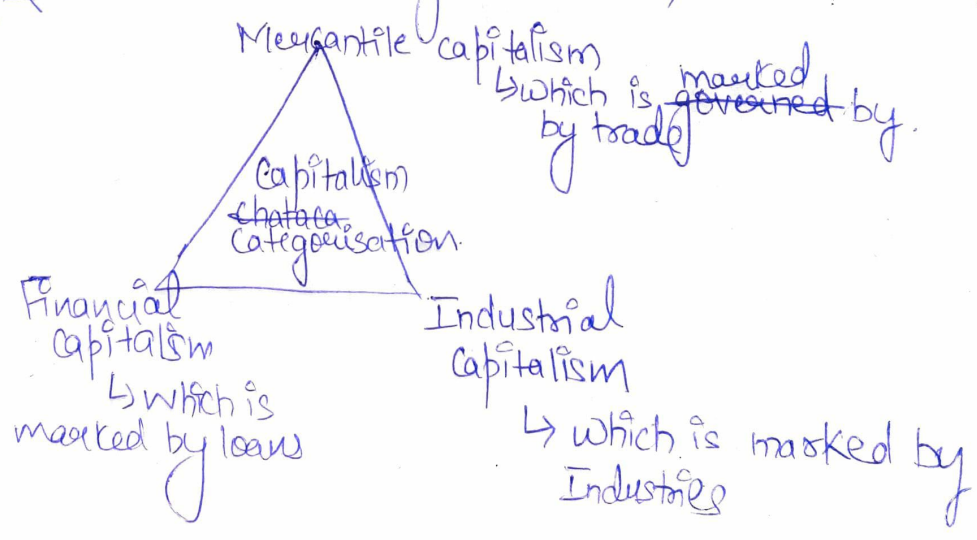 Mercantile capitalism
↳ which is marked governed by.
by trade
Capitalism
chataca
Categorisation.
Financial
capitalism
↳ which is
marked by loans
Industrial
Capitalism
↳ which is marked by
Industries